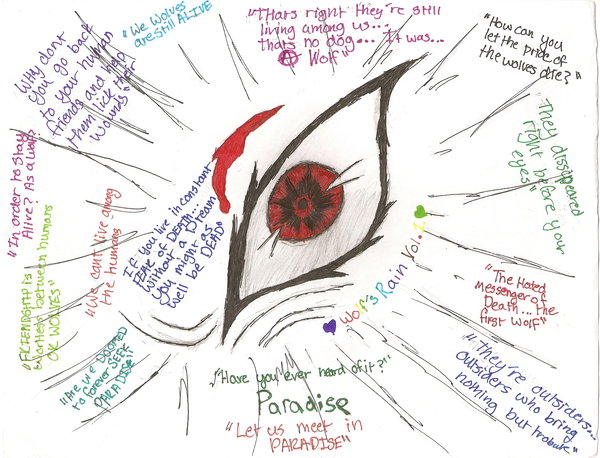 "We Wolves
are still ALIVE
"THats right they're still
living among us...
thats no dog... It was...
A Wolf"
"How can you
let the pride of
the wolves die?"
Why dont
you go back
to your human
friends and help
them lick their
wounds"
They disappeared
right before your
eyes"
"In order to stay
Alive? As a Wolf?
"FRIENDSHIP is
worthless between humans
OR WOLVES"
"We dont live among
the humans
If you live in constant
FEAR OF DEATH...
Without a Dream
you might as
well be DEAD"
Wolf's Rain Vol.1
"The Hated
Messenger of
Death... the
first Wolf"
"They're outsiders...
outsiders who bring
nothing but trouble"
"Are we DOOMED
to forever SEEK
PARADISE"
"Have you ever heard of it?"
Paradise
"Let us meet in
PARADISE"